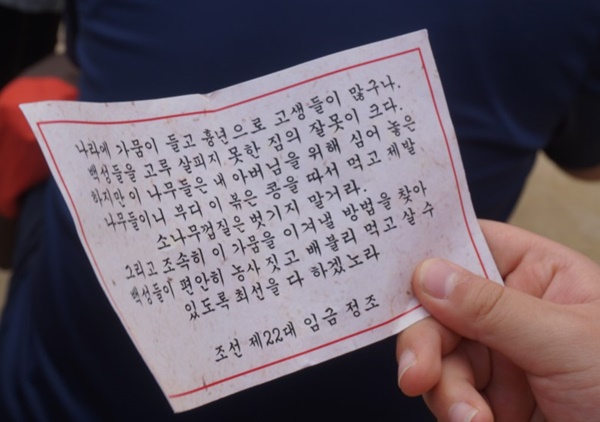 나라에 가뭄이 들고 흉년으로 고생들이 많구나.
백성들을 고루 살피지 못한 짐의 잘못이 크다.
하지만 이 나무들은 내 아버님을 위해 심어 놓은
나무들이니 부디 이 볶은 콩을 따서 먹고 제발
소나무껍질은 벗기지 말거라.
그리고 조속히 이 가뭄을 이겨낼 방법을 찾아
백성들이 편안히 농사 짓고 배불리 먹고 살 수
있도록 최선을 다 하겠노라
조선 제22대 임금 정조